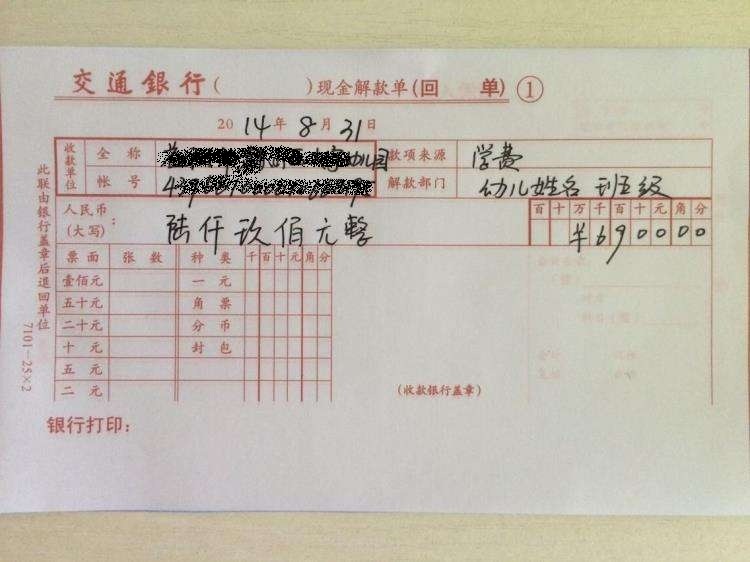 交通銀行( )现金解款单(回 单) ①
2014年8月31日
收款单位 全称 幼儿园 款项来源 学费
帐号 解款部门 幼儿姓名 班级
人民币(大写): 陆仟玖佰元整 百十万千百十元角分
¥690000
票面 张数 种类 千百十元角分
壹佰元 一元
五十元 角票
二十元 分币
十元 封包
五元
二元
(收款银行盖章)
银行打印:
此联由银行盖章后退回单位
7101-25×2